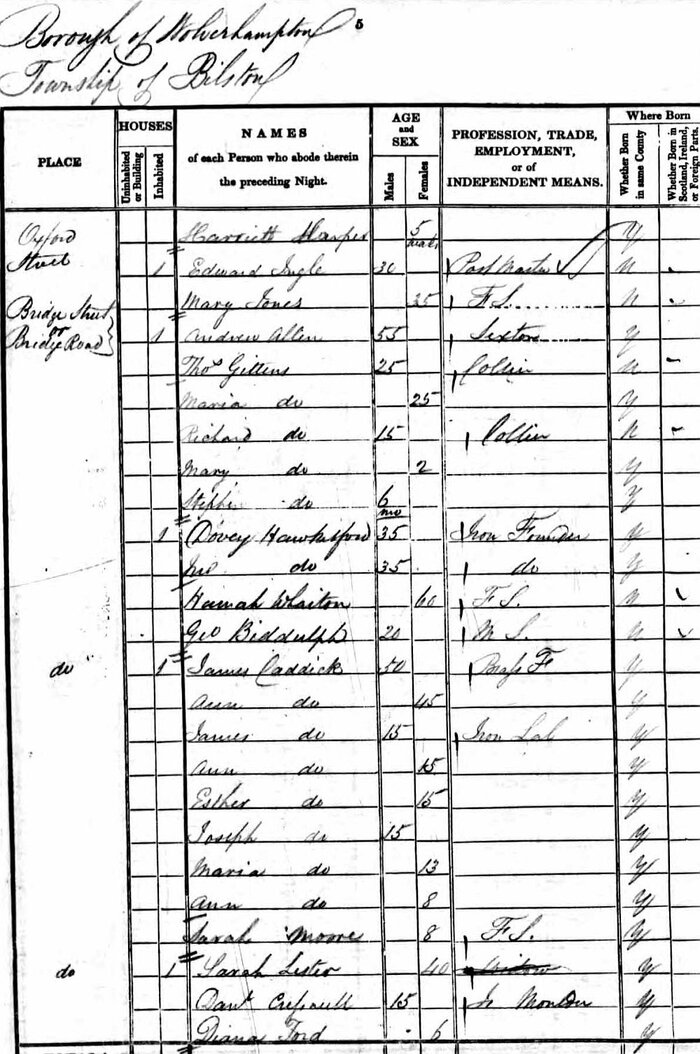 Borough of Wolverhampton 5
Township of Bilston
PLACE
HOUSES
Uninhabited or Building
Inhabited
NAMES
of each Person who abode therein
the preceding Night.
AGE
and
SEX
Males
Females
PROFESSION, TRADE,
EMPLOYMENT,
or of
INDEPENDENT MEANS.
Where Born
Whether Born in same County
Whether Born in Scotland, Ireland, or Foreign Parts.
Oxford Harriett Harper 5 y
Street 1 Edward Ingle 30 Post Master n
Mary Jones 25 F.S. n
Bridge Street
or
Bridge Road 1 Andrew Allen 55 Sexton y
Thos Gittens 25 n
Maria do 25 y
Richard do 15 n
Mary do 2 y
do 6 mo y
1 Dovey 35 Iron Founder y
do 35 do y
Hannah 60 F.S. n
Geo Biddulph 20 M.S. n
do 1 James Caddick 50 Brass F y
Ann do 45 y
James do 15 Iron Lab y
Ann do 15 y
Esther do 15 y
Joseph do 15 y
Maria do 13 y
Ann do 8 y
Sarah Moore 8 F.S. y
do 1 Sarah Lester 40 y
Danl 15 y
Diana Ford 6 y